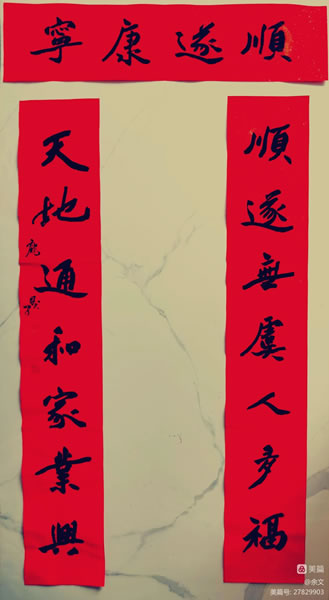 順遂康寧
順遂無虞人多福
天地通和家業興
美篇
@余文
美篇号: 27829903